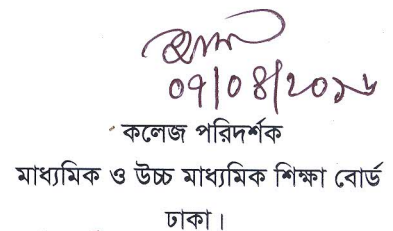 ০৭/০৪/২০১৬
কলেজ পরিদর্শক
মাধ্যমিক ও উচ্চ মাধ্যমিক শিক্ষা বোর্ড
ঢাকা।